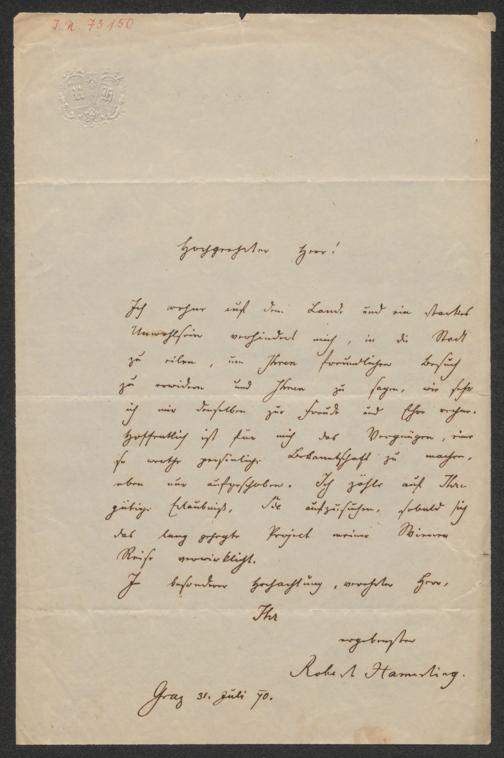 I. N. 73150
Hochgeehrter Herr!
Ich wohne auf dem Lande und ein starkes
Unwohlsein verhindert mich, in die Stadt
zu eilen, um Ihren freundlichen Besuch
zu erwidern und Ihnen zu sagen, wie sehr
ich mir denselben zur Freude und Ehre rechne.
Hoffentlich ist für mich das Vergnügen, eine
so werthe persönliche Bekanntschaft zu machen,
eben nur aufgeschoben. Ich zähle auf Ihre
gütige Erlaubniß, Sie aufzusuchen, sobald sich
das lang gehegte Project meiner Wiener
Reise verwirklicht.
In besonderer Hochachtung, verehrter Herr,
Ihr
ergebenster
Robert Hamerling.
Graz 31. Juli 70.